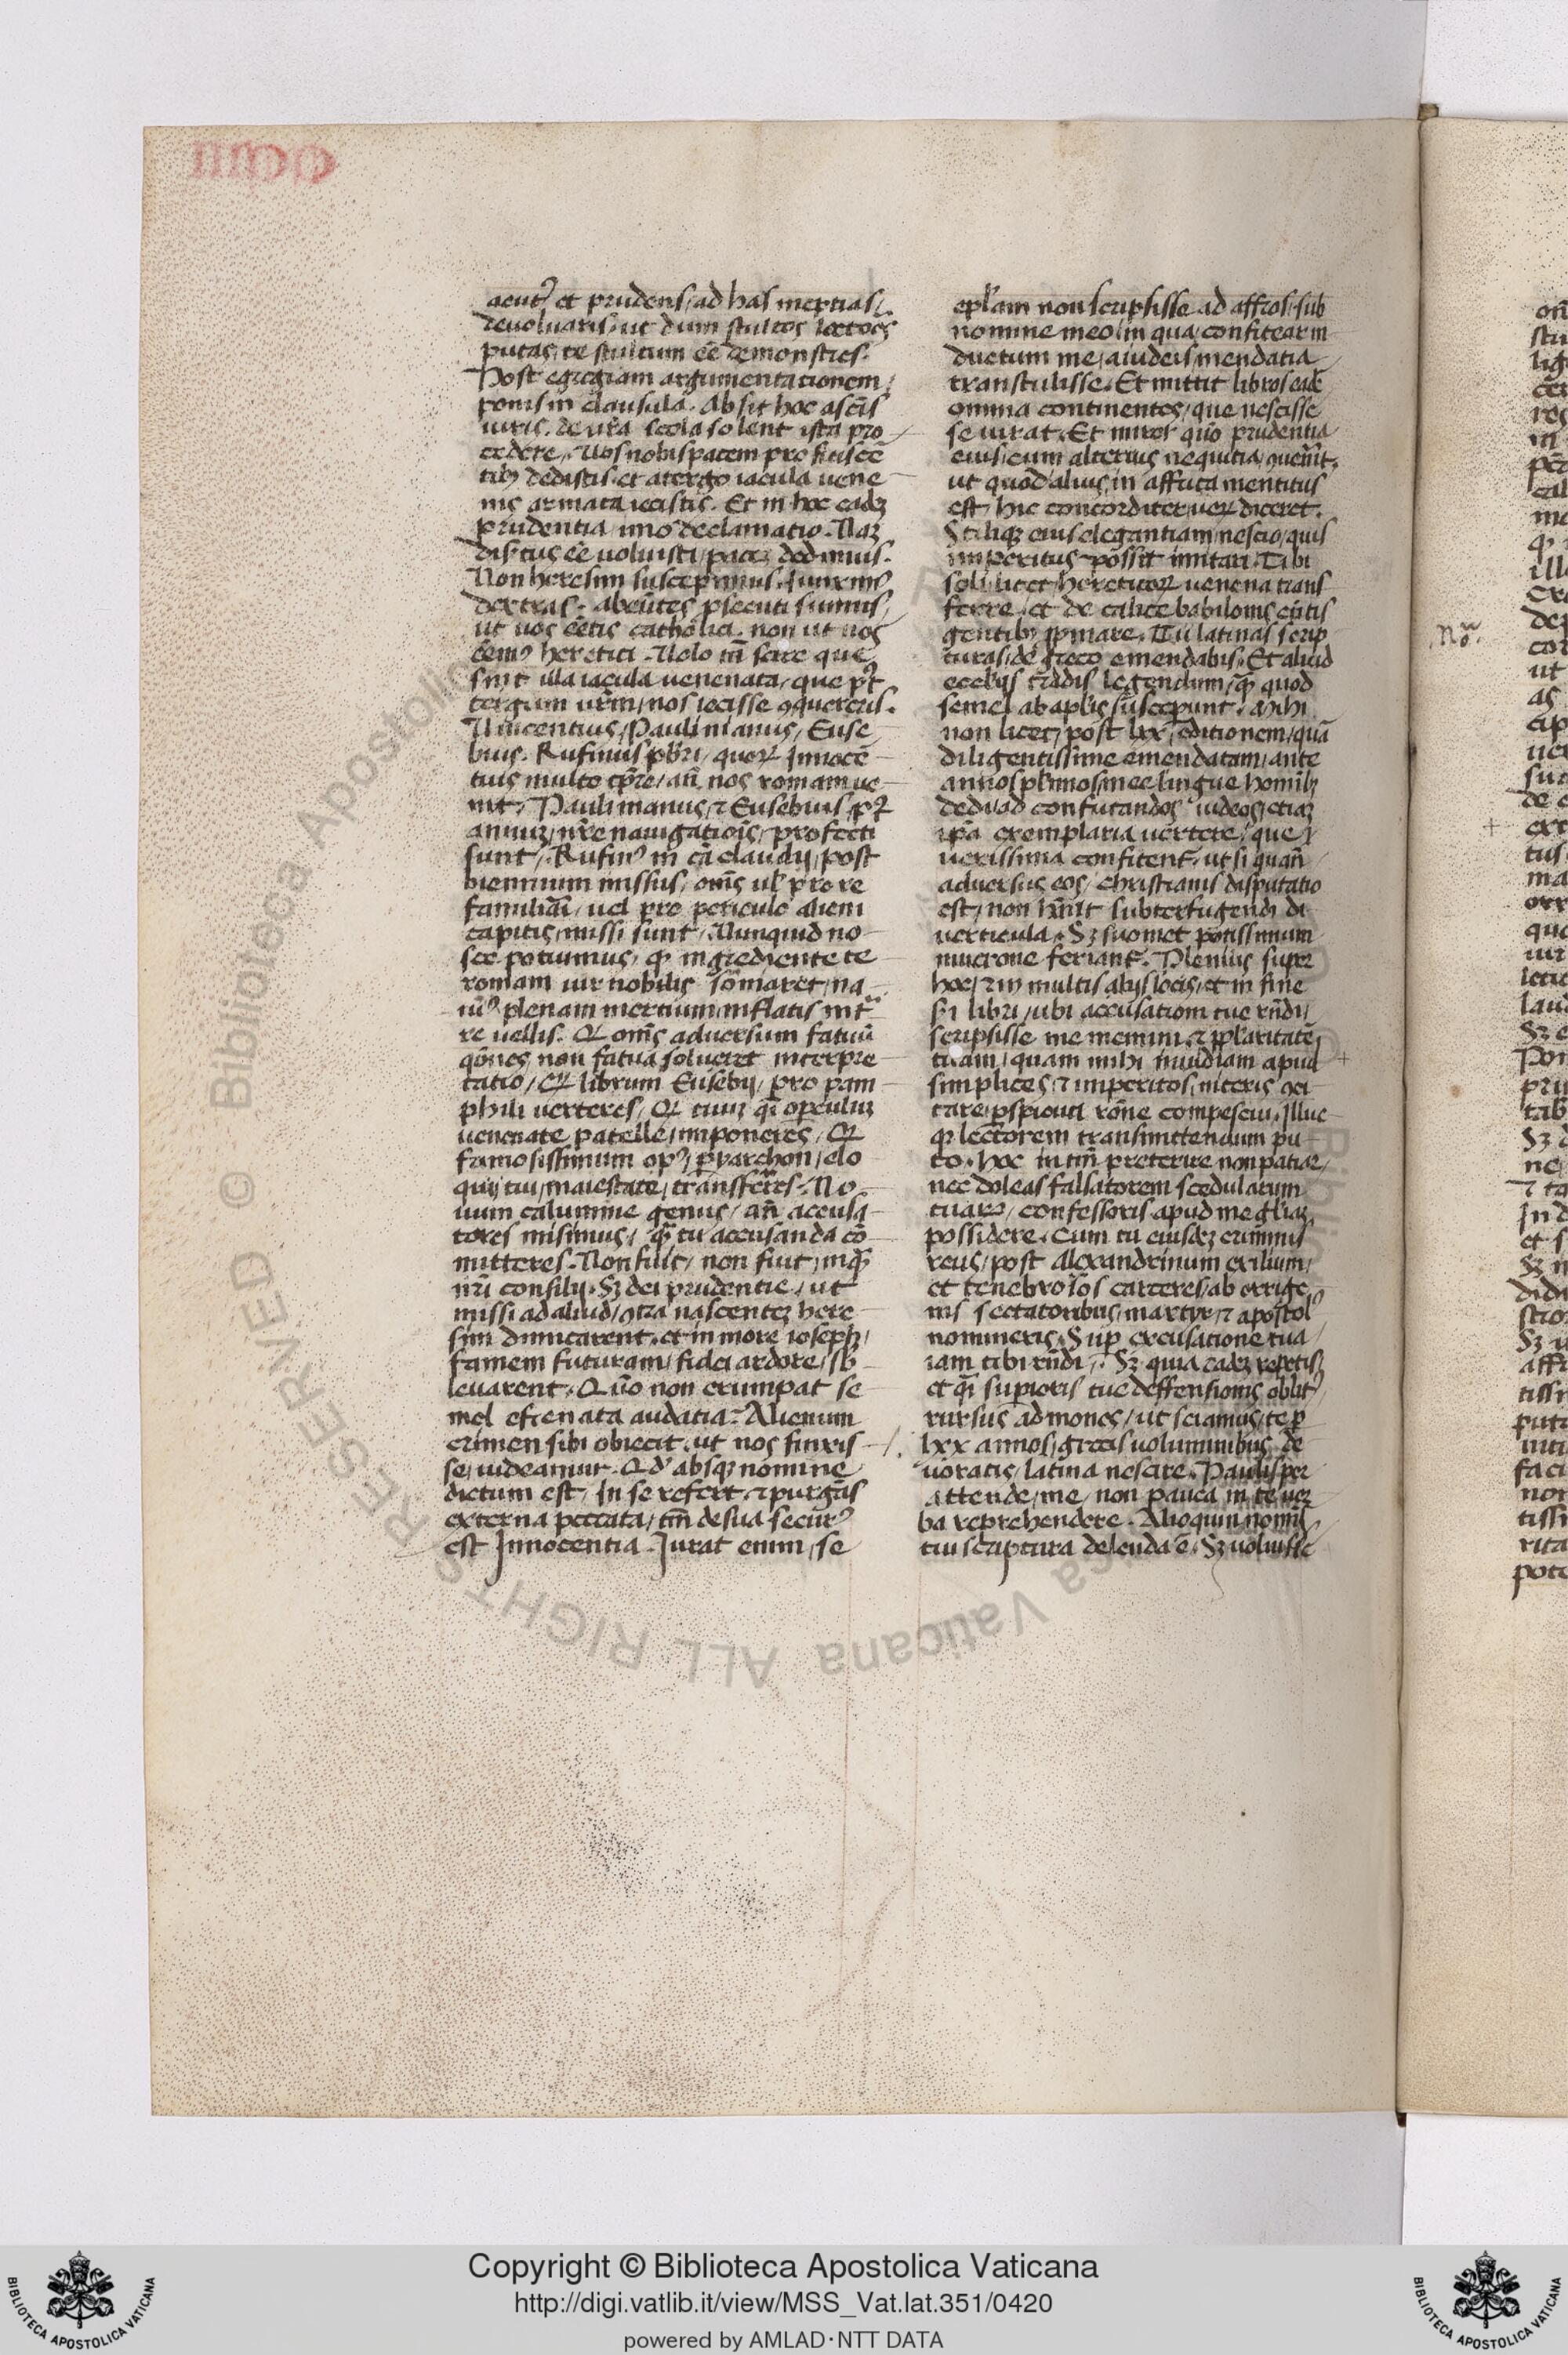 acut᷒ et prudens/ad has ineptias/
deuoluaris/ut dum stultos lectores
putas/te stultum eē demonstres.
Post egregiam argumentationem/
ponis in clausula. Absit hoc a sc̄is
uiris. de ur̄a scola solent ista pro
cedere. Uos nobis pacem proficiscē
tibꝫ dedistis. et a tergo iacula uene
nis armata iecistis. Et in hoc eadꝫ
prudentia/imo declamatio. Naꝫ
disertus eē uoluisti/paceꝫ dedimus.
Non heresim suscepimus. Iunximꝰ
dextras. abeūtes ꝓsecuti sumus/
ut uos eētis catholici. non ut nos
eēmꝰ heretici. Uolo tn̄ scire que
sint illa iacula uenenata/que pꝰt
tergum ur̄m/nos iecisse ꝯquereris.
Uincentius/Paulinianus/Euse
bius. Rufinus pb̄ri/quoꝝ Innocē
tius multo tp̄re/an̄ nos romam ue
nit/Paulinianus/⁊ Eusebius/pꝰt
annuꝫ/nr̄e nauigatiois/profecti
sunt. Rufinꝰ in cā claudij/post
biennium missus/om̄s ul̄ pro re
familiari/uel pro periculo alieni
capitis/missi sunt. Nunquid no
sce potuimus/ꝙ ingrediente te
romam uir nobilis somiaret/na
uꝫ plenam mertium/inflatis int᷒
re uellis. Qꝫ om̄s aduersum fatuū
q̄ōnes/non fatua solueret interpre
tatio/Qꝫ librum Eusebij/pro pam
phili uerteres/Qꝫ tuuꝫ q̄i operculuꝫ
uenenate patelle/imponeres/Qꝫ
famosissimum opꝰ/pyarchon/elo
quij tui/maiestate/transferres. No
uum calumnie genus/an̄ accusa
tores misimus/q̄ꝫ tu accusanda cō
mitteres. Non fuit/non fuit/inq̄ꝫ
nr̄i consilij. Sꝫ dei prudentie/ut
missi ad aliud/ꝯtra nascenteꝫ here
sim dimicarent. et in more ioseph/
famem futuram/fidei ardore/sb
leuarent. Quō non erumpat se
mel efrenata audatia. Alienum
crimen sibi obiecit. ut nos finxis
se/uideamur. Qd' absqꝫ nomine
dictum est/In se refert. ⁊ purgās
externa peccata/tm̄ de sua securꝰ
est Innocentia. Iurat enim/se
epl̄am non scripsisse ad affros/sub
nomine meo/in qua/confitear in
ductum me/a iudeis/mendatia
transtulisse. Et mittit libros eadē
omnia continentes/que nescisse
se iurat. Et miror quō prudentia
eius/cum alterius nequitia/ꝯuenit.
ut quod alius/in affrica mentitus
est/hic concorditer ueꝝ diceret.
Stiliqꝫ eius elegantiam/nescio/quis
imperitus possit imitari. Tibi
soli/licet/hereticoꝝ uenena trans
ferre/et de calice babilonis cūtis
gentibꝫ ꝓpinare. Tu latinas scrip
turas/de greco emendabis. Et aliud
eccl̄ijs tradis legendum/q̄ꝫ quod
semel ab apl̄is susceperunt. Mihi
non licet/post lxx/editionem/quā
diligentissime emendatam/ante
annos pl̄imos/mee lingue homībꝫ
dedi/ad confutandos iudeos/etiaꝫ
ip̄a exemplaria uertere/que
uerissima confitent᷒. ut si quan̄
aduersus eos/christianis disputatio
est/non hn̄t subterfugendi di
uerticula. Sꝫ suomet potissimum
mucrone feriant᷒. Plenius super
hoc/⁊ in multis alijs locis/et in fine
sᷓi libri/ubi accusationi tue rn̄di/
scripsisse me memini. ⁊ popl̄aritatē
tuam/quam mihi inuidiam apud
simplices/⁊ imperitos/niteris ꝯci
tare/ꝑspicua rōne compescui. Illuc
qꝫ lectorem transmittendum pu
to. hoc in tm̄ preterire non patiar/
nec doleas falsatorem scedularum
tuaꝝ/confessoris apud me gl̄iaꝫ
possidere. Cum tu eiusdeꝫ criminis
reus/post Alexandrinum exilium/
et tenebrosos carceres/ab origeᷓ
nis sectatoribus/martyr/⁊ apostolꝰ
nomineris. Suꝑ excusatione tua
iam tibi rn̄di. Sꝫ quia eadeꝫ repetis/
et q̄i superioris tue deffensionis oblitꝰ
rursus admones/ut sciamus/te ꝑ
lxx annos/grecis uoluminibus de
uoratis/latina nescire. Paulisper
attende/me/non pauca in te uer
ba reprehendere. Alioquin omnis
tui scriptura delenda ē. Sꝫ uoluisse
Nōᵃ
Copyright © Biblioteca Apostolica Vaticana
http://digi.vatlib.it/view/MSS_Vat.lat.351/0420
powered by AMLAD·NTT DATA
BIBLIOTECA APOSTOLICA VATICANA
BIBLIOTECA APOSTOLICA VATICANA